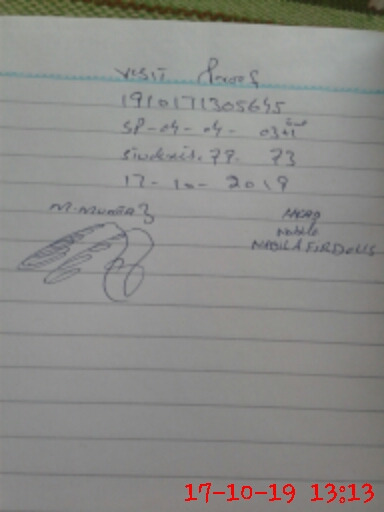 VISIT Proof
1910171305645
SP-04-04- 0341
77. 73
17-10-2019
M-Mumtaz
Nabila
NABILA FIRDOUS
17-10-19 13:13